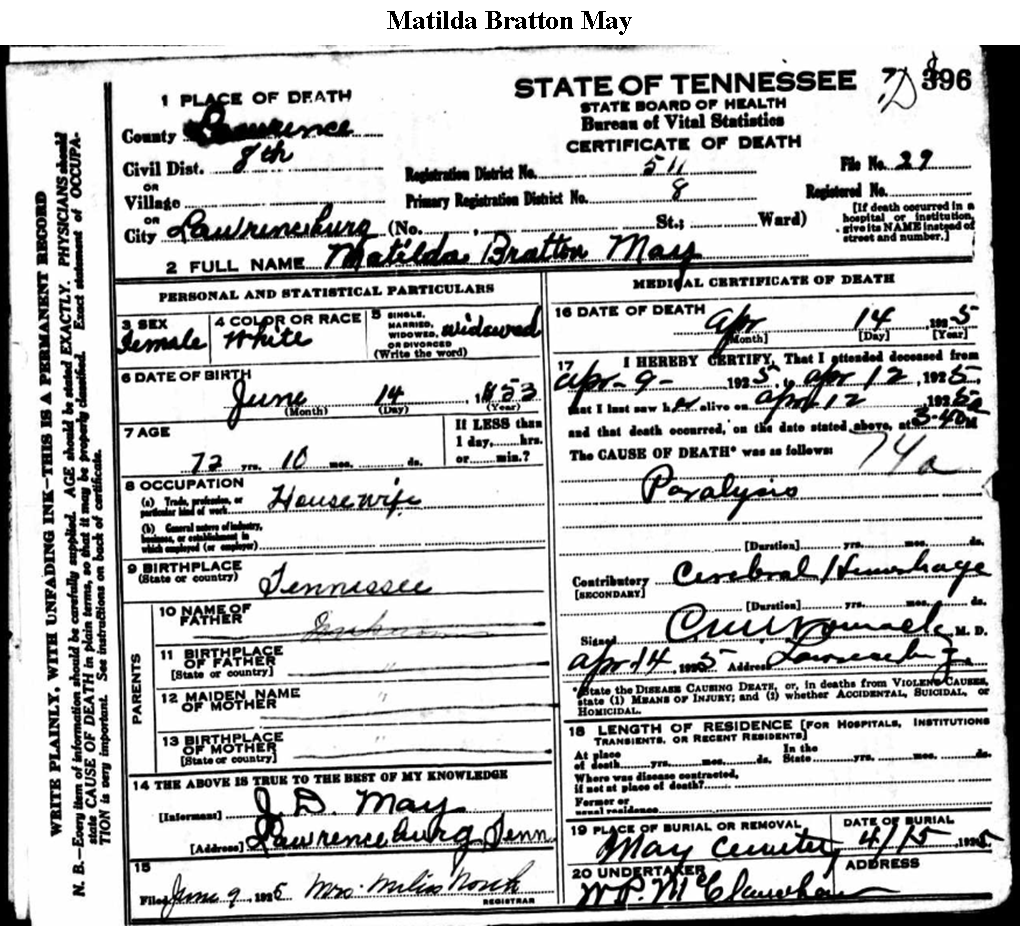 Matilda Bratton May
STATE OF TENNESSEE
396
STATE BOARD OF HEALTH
Bureau of Vital Statistics
CERTIFICATE OF DEATH
1 PLACE OF DEATH
County Lawrence
Civil Dist. 8th
OR
Village
OR
City Lawrenceburg (No. , St.; Ward)
Registration District No. 511
Primary Registration District No. 8
File No. 29
Registered No.
[If death occurred in a
hospital or institution,
give its NAME instead of
street and number.]
2 FULL NAME Matilda Bratton May
PERSONAL AND STATISTICAL PARTICULARS
3 SEX
Female
4 COLOR OR RACE
White
5 SINGLE,
MARRIED,
WIDOWED,
OR DIVORCED
(Write the word)
widowed
6 DATE OF BIRTH
June 14 1853
(Month) (Day) (Year)
7 AGE
72 yrs. 10 mos. ds.
If LESS than
1 day, hrs.
or min.?
8 OCCUPATION
(a) Trade, profession, or
particular kind of work
Housewife
(b) General nature of industry,
business, or establishment in
which employed (or employer)
9 BIRTHPLACE
(State or country)
Tennessee
PARENTS
10 NAME OF
FATHER
Unknown
11 BIRTHPLACE
OF FATHER
[State or country]
"
12 MAIDEN NAME
OF MOTHER
"
13 BIRTHPLACE
OF MOTHER
(State or country)
"
14 THE ABOVE IS TRUE TO THE BEST OF MY KNOWLEDGE
[Informant] J. D. May
[Address] Lawrenceburg Tenn
15
Filed June 9 1925 Mrs.
REGISTRAR
MEDICAL CERTIFICATE OF DEATH
16 DATE OF DEATH
Apr 14 1925
[Month] [Day] [Year]
17 I HEREBY CERTIFY, That I attended deceased from
Apr-9- 1925, Apr 12, 1925,
that I last saw her alive on Apr 12 1925
and that death occurred, on the date stated above, at 3-40 M
The CAUSE OF DEATH* was as follows:
74a
Paralysis
[Duration] yrs. mos. ds.
Contributory Cerebral Hemorhage
[SECONDARY]
[Duration] yrs. mos. ds.
Signed M. D.
Apr 14 1925 Address
*State the DISEASE CAUSING DEATH, or, in deaths from VIOLENT CAUSES,
state (1) MEANS OF INJURY; and (2) whether ACCIDENTAL, SUICIDAL, or
HOMICIDAL.
18 LENGTH OF RESIDENCE [FOR HOSPITALS, INSTITUTIONS
TRANSIENTS, OR RECENT RESIDENTS]
At place
of death yrs. mos. ds.
In the
State yrs. mos. ds.
Where was disease contracted,
if not at place of death?
Former or
usual residence
19 PLACE OF BURIAL OR REMOVAL
May
DATE OF BURIAL
4/15 1925
20 UNDERTAKER
W.P.
ADDRESS
WRITE PLAINLY, WITH UNFADING INK—THIS IS A PERMANENT RECORD
N. B.—Every item of information should be carefully supplied. AGE should be stated EXACTLY. PHYSICIANS should
state CAUSE OF DEATH in plain terms, so that it may be properly classified. Exact statement of OCCUPA-
TION is very important. See instructions on back of certificate.